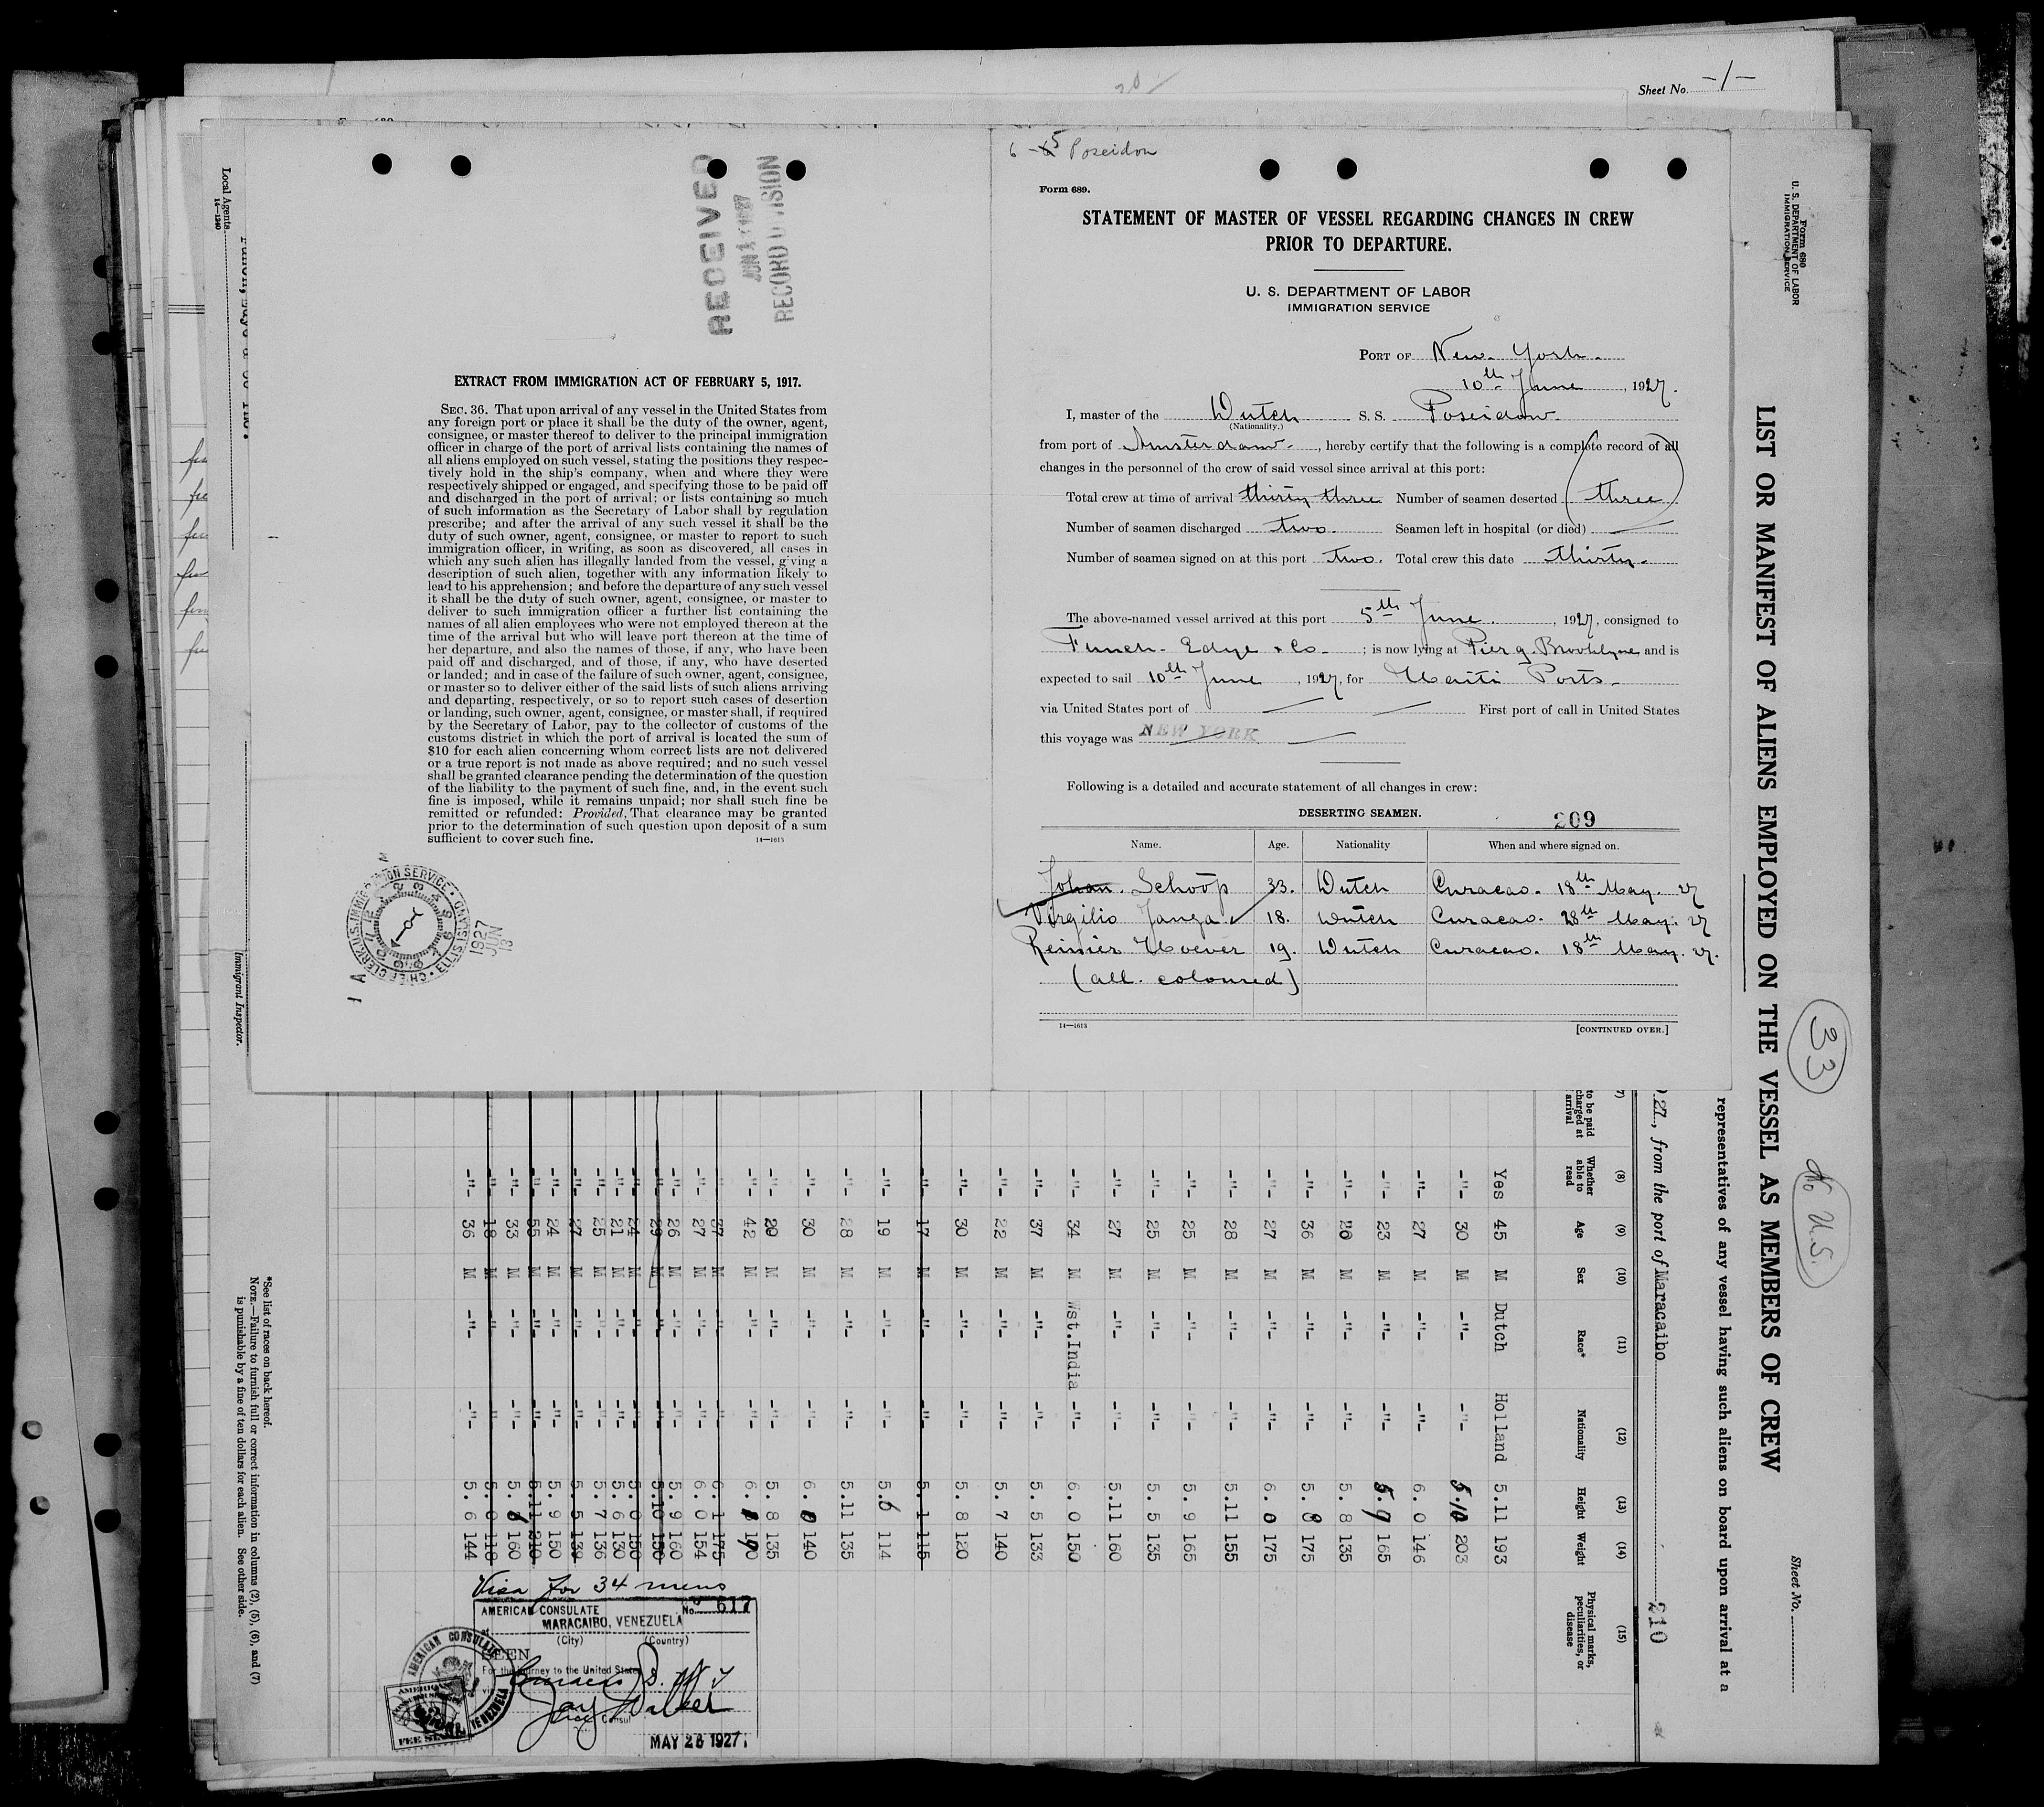 Sheet No. -1-
6-5 Poseidon
Form 689.
STATEMENT OF MASTER OF VESSEL REGARDING CHANGES IN CREW
PRIOR TO DEPARTURE.
U. S. DEPARTMENT OF LABOR
IMMIGRATION SERVICE
PORT OF New York.
10th June, 1927.
I, master of the Dutch S. S. Poseidon
(Nationality.)
from port of Amsterdam, hereby certify that the following is a complete record of all
changes in the personnel of the crew of said vessel since arrival at this port:
Total crew at time of arrival thirty three Number of seamen deserted three
Number of seamen discharged two. Seamen left in hospital (or died) —
Number of seamen signed on at this port two. Total crew this date thirty.
The above-named vessel arrived at this port 5th June, 1927, consigned to
Funch Edye & Co. ; is now lying at Pier 9. Brooklyn and is
expected to sail 10th June, 1927, for Haiti Ports
via United States port of — — First port of call in United States
this voyage was NEW YORK
Following is a detailed and accurate statement of all changes in crew:
DESERTING SEAMEN. 209
Name. Age. Nationality When and where signed on.
Johan. Schoop 33. Dutch Curacao. 18th May. 27
Virgilio Janga 18. Dutch Curacao. 28th May. 27
Reinier Hoever 19. Dutch Curacao. 18th May. 27.
(all coloured)
14—1613 [CONTINUED OVER.]
RECEIVED
JUN 1927
RECORD DIVISION
EXTRACT FROM IMMIGRATION ACT OF FEBRUARY 5, 1917.
SEC. 36. That upon arrival of any vessel in the United States from
any foreign port or place it shall be the duty of the owner, agent,
consignee, or master thereof to deliver to the principal immigration
officer in charge of the port of arrival lists containing the names of
all aliens employed on such vessel, stating the positions they respec-
tively hold in the ship's company, when and where they were
respectively shipped or engaged, and specifying those to be paid off
and discharged in the port of arrival; or lists containing so much
of such information as the Secretary of Labor shall by regulation
prescribe; and after the arrival of any such vessel it shall be the
duty of such owner, agent, consignee, or master to report to such
immigration officer, in writing, as soon as discovered, all cases in
which any such alien has illegally landed from the vessel, giving a
description of such alien, together with any information likely to
lead to his apprehension; and before the departure of any such vessel
it shall be the duty of such owner, agent, consignee, or master to
deliver to such immigration officer a further list containing the
names of all alien employees who were not employed thereon at the
time of the arrival but who will leave port thereon at the time of
her departure, and also the names of those, if any, who have been
paid off and discharged, and of those, if any, who have deserted
or landed; and in case of the failure of such owner, agent, consignee,
or master so to deliver either of the said lists of such aliens arriving
and departing, respectively, or so to report such cases of desertion
or landing, such owner, agent, consignee, or master shall, if required
by the Secretary of Labor, pay to the collector of customs of the
customs district in which the port of arrival is located the sum of
$10 for each alien concerning whom correct lists are not delivered
or a true report is not made as above required; and no such vessel
shall be granted clearance pending the determination of the question
of the liability to the payment of such fine, and, in the event such
fine is imposed, while it remains unpaid; nor shall such fine be
remitted or refunded: Provided, That clearance may be granted
prior to the determination of such question upon deposit of a sum
sufficient to cover such fine. 14—1613
CHIEF CLERK U.S. IMMIGRATION SERVICE ELLIS ISLAND
1927
JUN
13
Form 680
U. S. DEPARTMENT OF LABOR
IMMIGRATION SERVICE
Sheet No.
LIST OR MANIFEST OF ALIENS EMPLOYED ON THE VESSEL AS MEMBERS OF CREW
33
No U.S.
representatives of any vessel having such aliens on board upon arrival at a
27, from the port of Maracaibo 210
(7) (8) (9) (10) (11) (12) (13) (14) (15)
to be paid charged at arrival Whether able to read Age Sex Race* Nationality Height Weight Physical marks, peculiarities, or disease
Yes 45 M Dutch Holland 5.11 193
-"- 30 M -"- -"- 5.10 203
-"- 27 M -"- -"- 6. 0 146
-"- 23 M -"- -"- 5.9 165
-"- 26 M -"- -"- 5. 8 135
-"- 36 M -"- -"- 5. 8 175
-"- 27 M -"- -"- 6. 0 175
-"- 28 M -"- -"- 5.11 155
-"- 25 M -"- -"- 5. 9 165
-"- 25 M -"- -"- 5. 5 135
-"- 27 M -"- -"- 5.11 160
-"- 34 M Wst.India -"- 6. 0 150
-"- 37 M -"- -"- 5. 5 133
-"- 22 M -"- -"- 5. 7 140
-"- 30 M -"- -"- 5. 8 120
-"- 17 M -"- -"- 5. 1 115
-"- 19 M -"- -"- 5.6 114
-"- 28 M -"- -"- 5.11 135
-"- 30 M -"- -"- 6. 0 140
-"- 29 M -"- -"- 5. 8 135
-"- 42 M -"- -"- 6. 190
-"- 37 M -"- -"- 6. 1 175
-"- 27 M -"- -"- 6. 0 154
-"- 26 M -"- -"- 5. 9 160
-"- 29 M -"- -"- 5.10 150
-"- 24 M -"- -"- 5. 0 150
-"- 21 M -"- -"- 5. 6 130
-"- 25 M -"- -"- 5. 7 136
-"- 27 M -"- -"- 5. 5 139
-"- 24 M -"- -"- 5. 9 150
-"- 55 M -"- -"- 5.11 210
-"- 33 M -"- -"- 5. 6 160
-"- 18 M -"- -"- 5. 0 110
-"- 36 M -"- -"- 5. 6 144
Visa for 34 mens
AMERICAN CONSULATE No. 617
at MARACAIBO, VENEZUELA
(City) (Country)
SEEN
For the journey to the United States
via Curacao
Jay Walker
Vice Consul
MAY 26 1927
AMERICAN CONSULATE VENEZUELA
*See list of races on back hereof.
NOTE.—Failure to furnish full or correct information in columns (2), (5), (6), and (7)
is punishable by a fine of ten dollars for each alien. See other side.
Local Agents
14—1240
Immigrant Inspector.